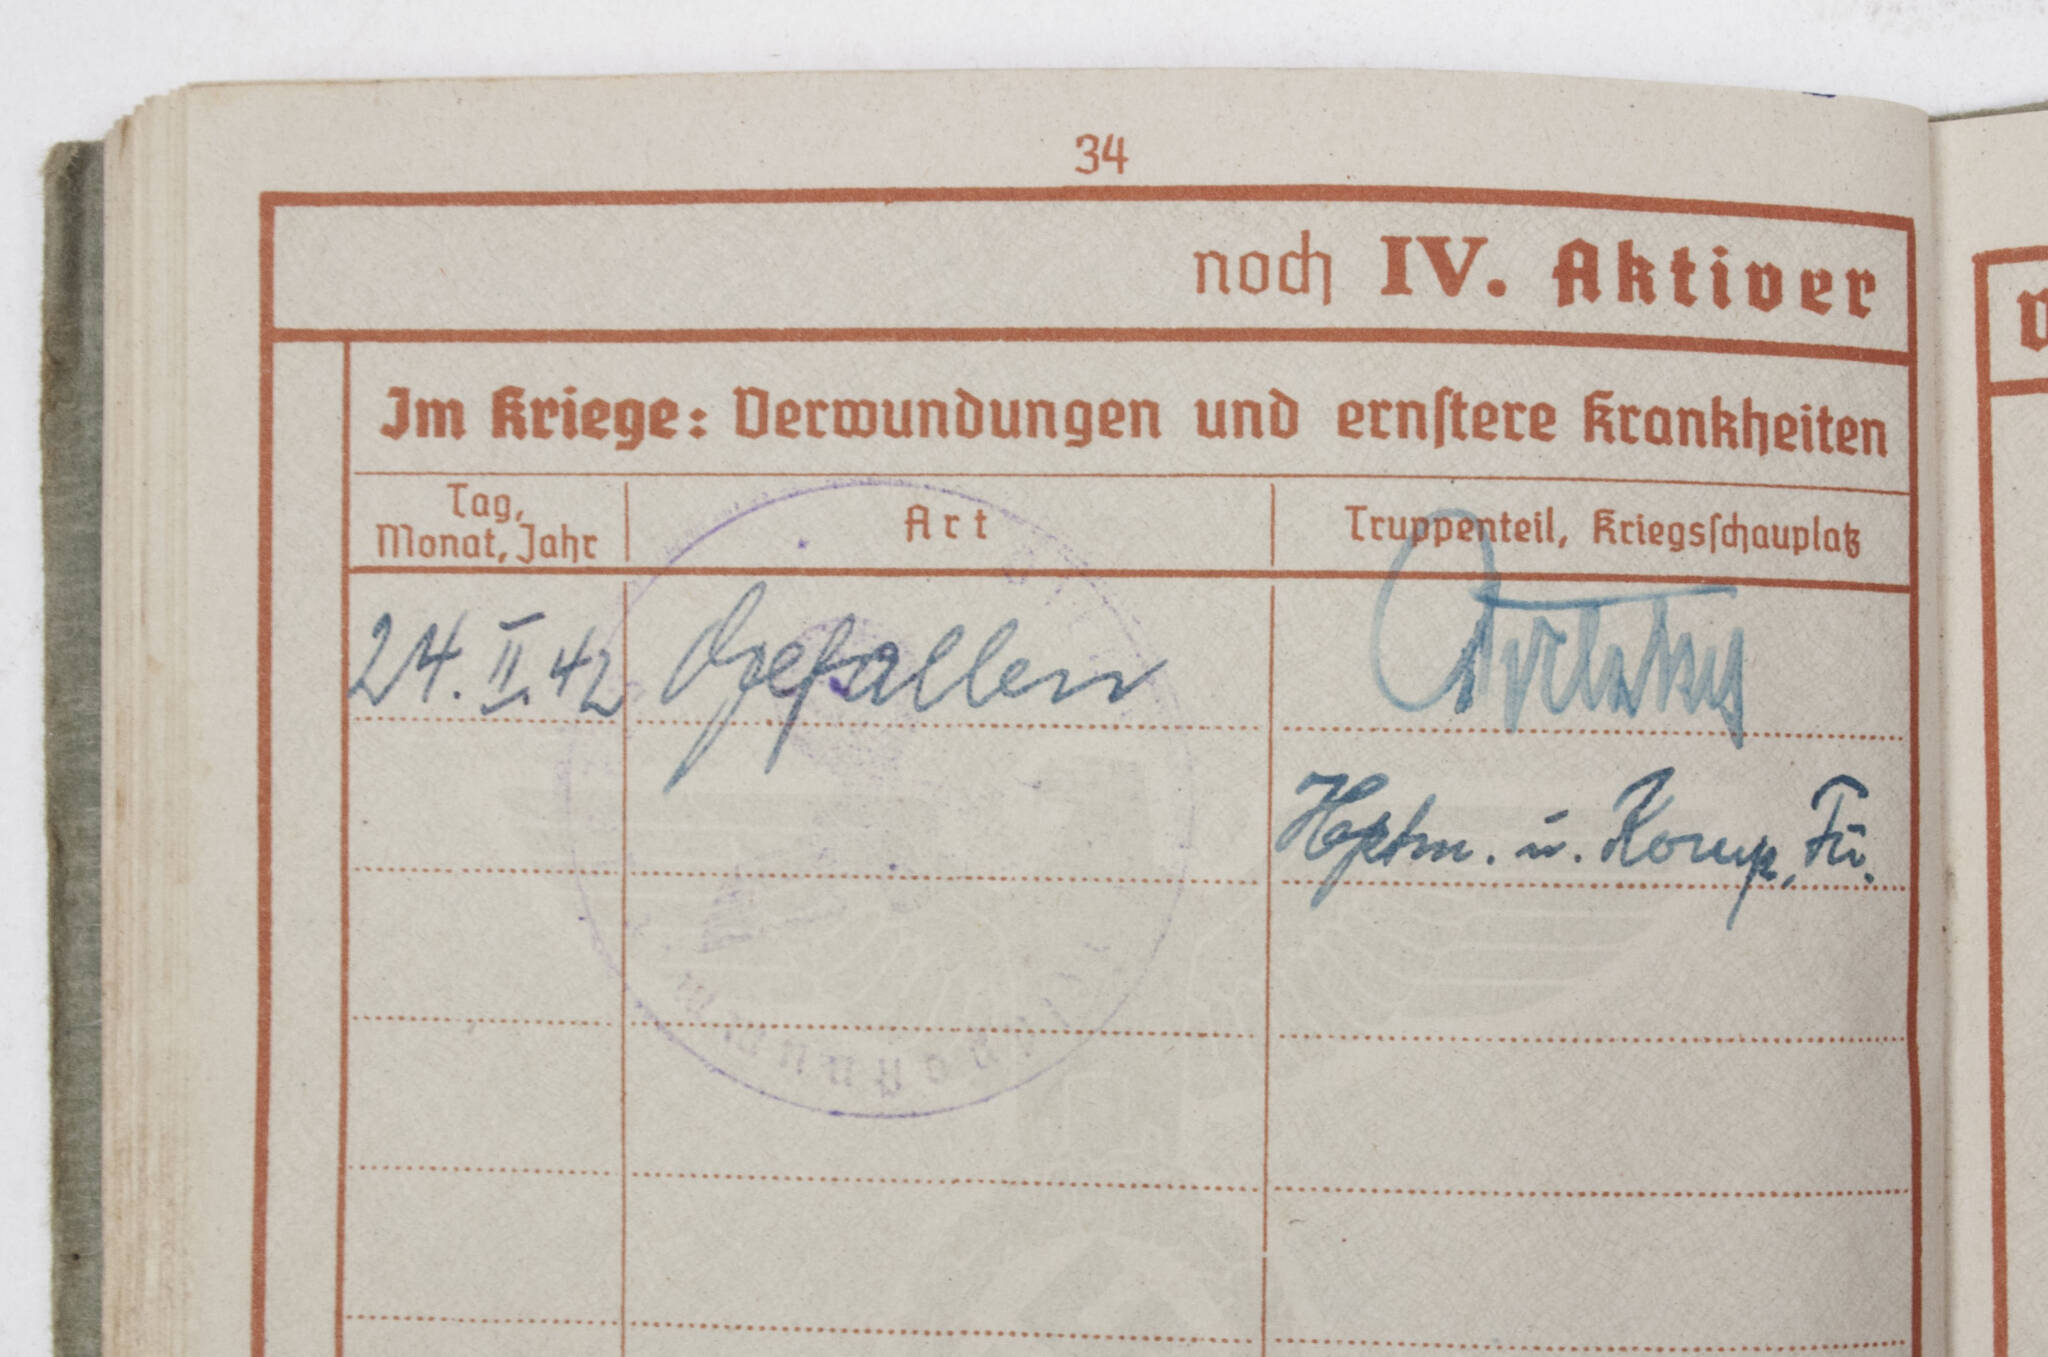 34
noch IV. Aktiver
Im Kriege: Verwundungen und ernstere Krankheiten
Tag,
Monat, Jahr
Art
Truppenteil, Kriegsschauplatz
24. II. 42 Gefallen
Hptm. u. Komp. Fü.